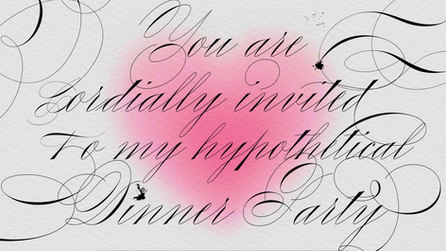 You are
Cordially invited
To my hypothetical
Dinner Party